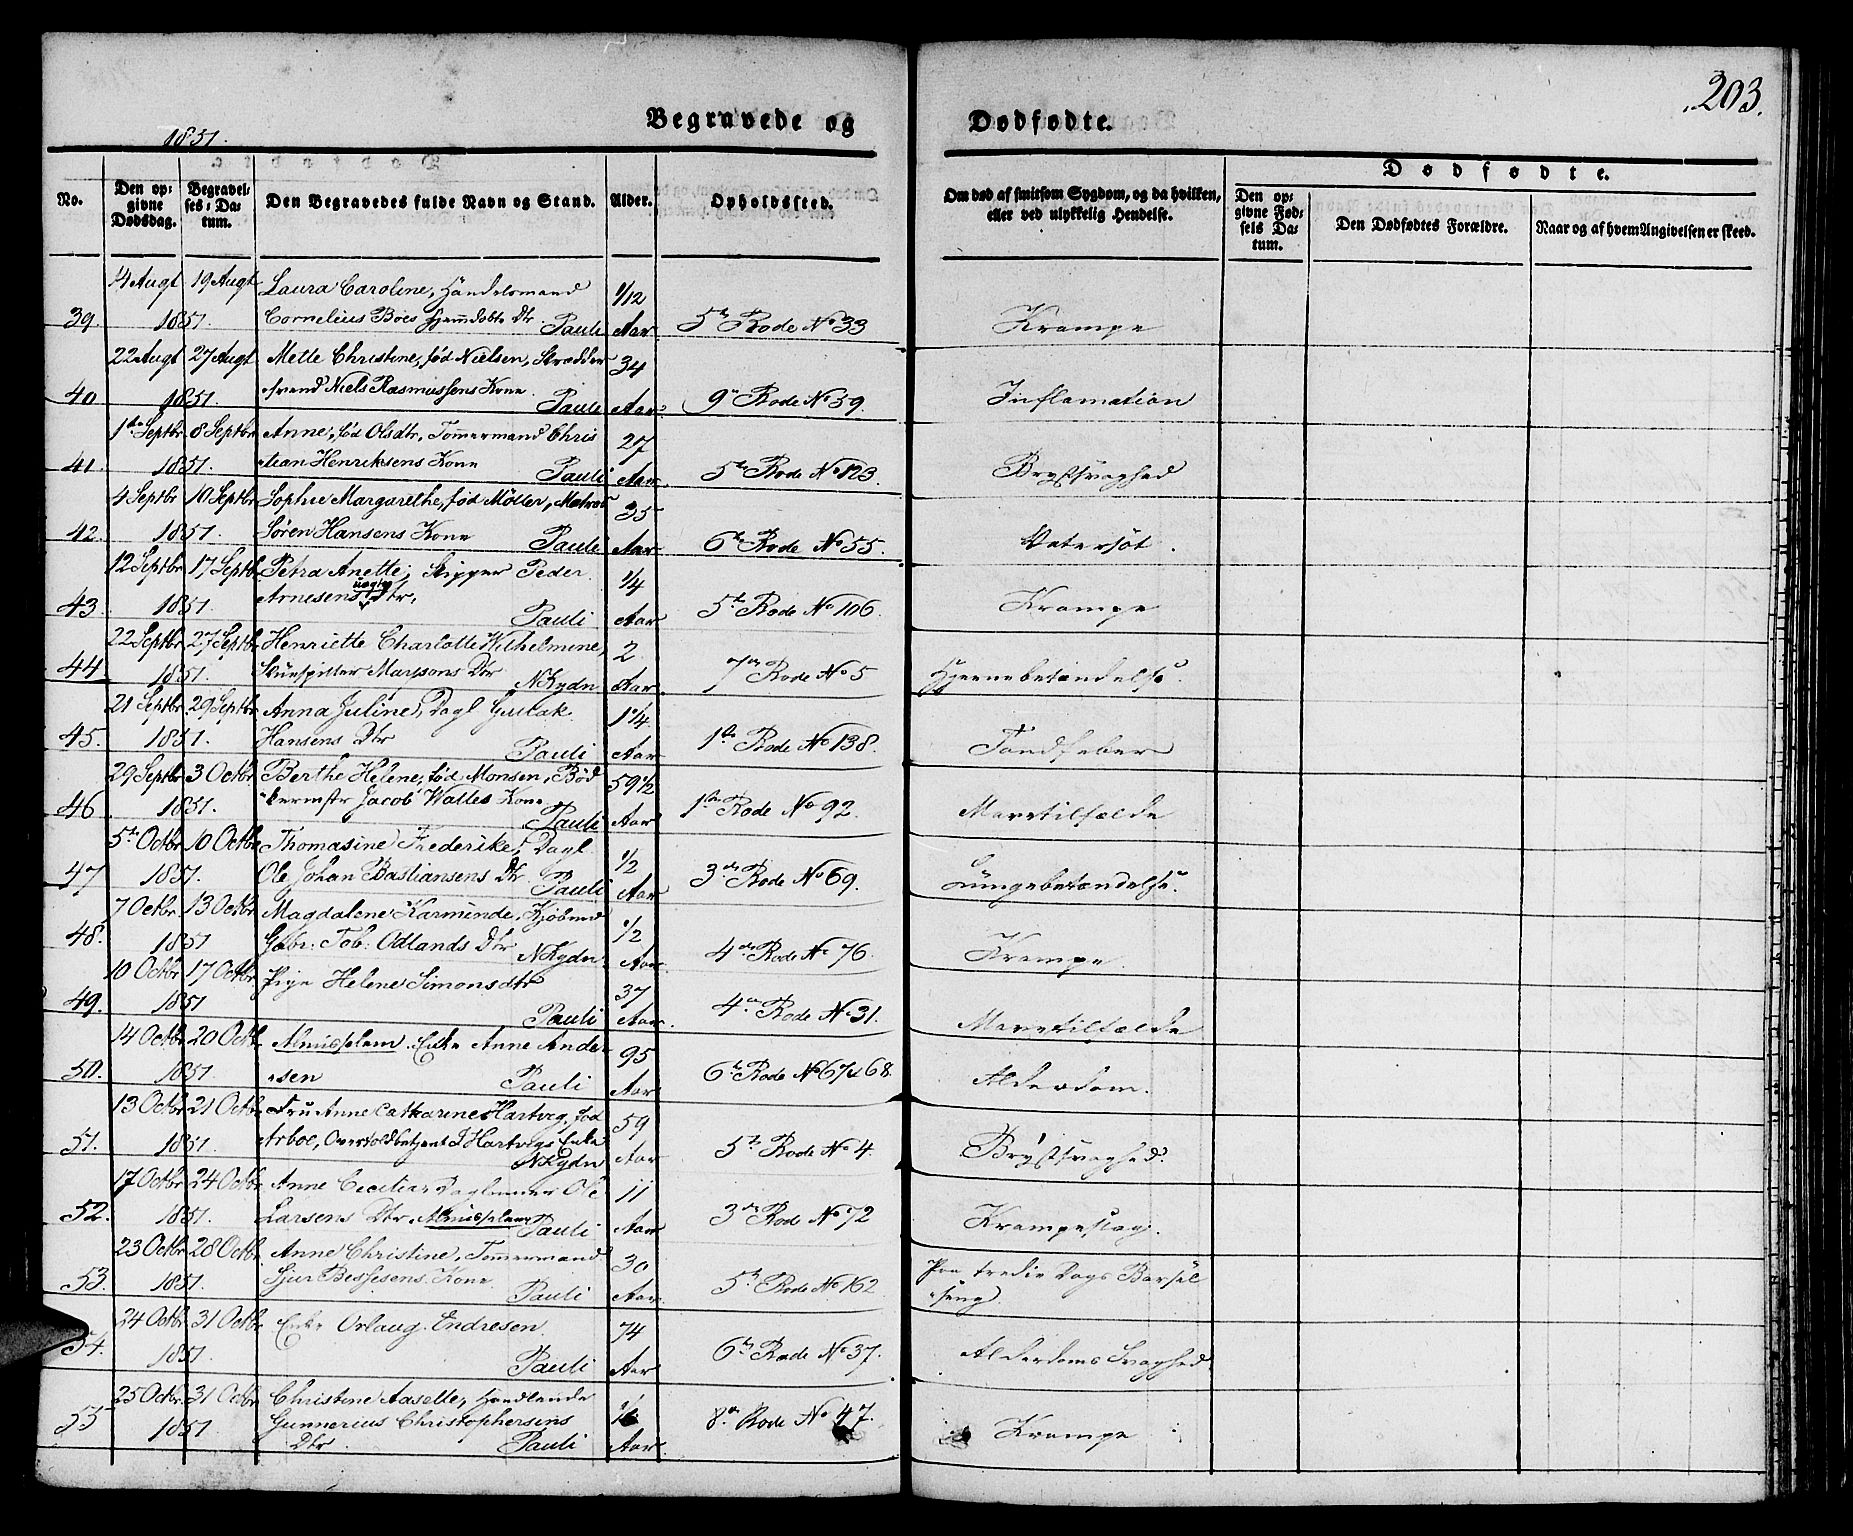 203.
1851.
Begravede og Dødfødte.
No.
Den opgivne Dødsdag.
Begravelses-Datum.
Den Begravedes fulde Navn og Stand.
Alder.
Opholdssted.
Om død af smitsom Sygdom, og da hvilken, eller ved ulykkelig Hendelse.
Dødfødte.
Den opgivne Fødsels Datum.
Den Dødfødtes Forældre.
Naar og af hvem Angivelsen er skeed.
14 Augt 19 Augt Laura Caroline, Handelsmand 1/12
39. 1851. Cornelius Boes hjemdøbte Dtr Pauli Aar 5te Rode No 33 Krampe
22 Augt 27 Augt Mette Christine, fød Nielsen, Skrædder 34
40 1851. svend Niels Rasmussens Kone. Pauli Aar. 9de Rode No 39. Inflamation
1ste Septbr 8 Septbr Anne, fød Olsdtr, Tømmermand Chris 27
41. 1851. tian Henriksens Kone Pauli Aar 5te Rode No 123. Brystsvaghed
4 Septbr 10 Septbr Sophie Margarethe, fød Møller, Matros 35
42. 1851. Søren Hansens Kone Pauli Aar 6te Rode No 55. Vatersot.
12 Septbr 17 Septbr Petra Anette, Skipper Peder 1/4
43. 1851. Arnesens uægte Dtr, Pauli Aar 5te Rode No 106. Krampe
22 Septbr 27 Septbr Henriette Charlotte Wilhelmine, 2
44 1851. Skuespiller Marssons Dtr NKydn Aar. 7de Rode No 5 Hjernebetændelse.
21 Septbr 29 Septbr Anna Juline, Dagl Guslak 1 1/4
45. 1851. Hansens Dtr Pauli Aar 1ste Rode No 138. Tandfeber
29 Septbr 3 Octbr Berthe Helene, fød Monsen, Bød 59 1/2
46 1851. kermstr Jacob Walles Kone Pauli Aar 1ste Rode No 92. Mavetilfælde
5te Octbr 10 Octbr Thomasine Frederikke, Dagl. 1/2
47 1851. Ole Johan Bastiansens Dtr Pauli Aar 3die Rode No 69. Lungebetændelse.
7 Octbr 13 Octbr Magdalene Karminde, Kjøbmd 1/2
48. 1851 Gabr: Tob: Odlands Dtr NKydn. Aar. 4de Rode No 76. Krampe.
10 Octbr 17 Octbr Pige Helene Simonsdtr 37
49. 1851 Pauli Aar. 4de Rode No 31. Mavetilfælde
14 Octbr 20 Octbr Almisselem Enke Anne Ander 95
50. 1851. sen Pauli Aar. 6te Rode No 67 & 68. Alderdom.
13 Octbr 21 Octbr Fru Anne Catharine Hartvig, fød 59
51. 1851. Arboe, Overtoldbetjent J Hartvigs Enke NKydn Aar 5te Rode No 4. Brystsvaghed.
17 Octbr 24 Octbr Anne Cecilia, Dagleiner Ole 11
52. 1851. Larsens Dtr, Almisselem Pauli Aar 3die Rode No 72 Krampeslag.
23 Octbr 28 Octbr Anne Christine, Tømmermand 30
53. 1851. Sjur Bessesens Kone Pauli Aar. 5te Rode No 162. Paa tredie Dags Barsel
seng.
24 Octbr 31 Octbr Enke Orlaug Endresen. 74
54. 1851. Pauli Aar 6te Rode No 37. Alderdoms Svaghed
25 Octbr 31 Octbr Christine Aaselle, Handlende
55 1851. Gunnerius Christophersens 8de Rode No 47. Krampe
Dtr. Pauli Aar